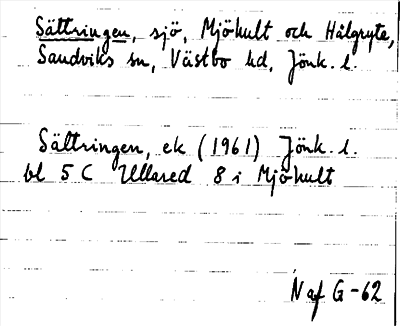 Sältringen, sjö, Mjöhult och Hålgryte,
Sandviks sn, Västbo hd, Jönk. l.
Sältringen, ek (1961) Jönk. l.
bl 5 C Ullared 8 i Mjöhult
N af G-62